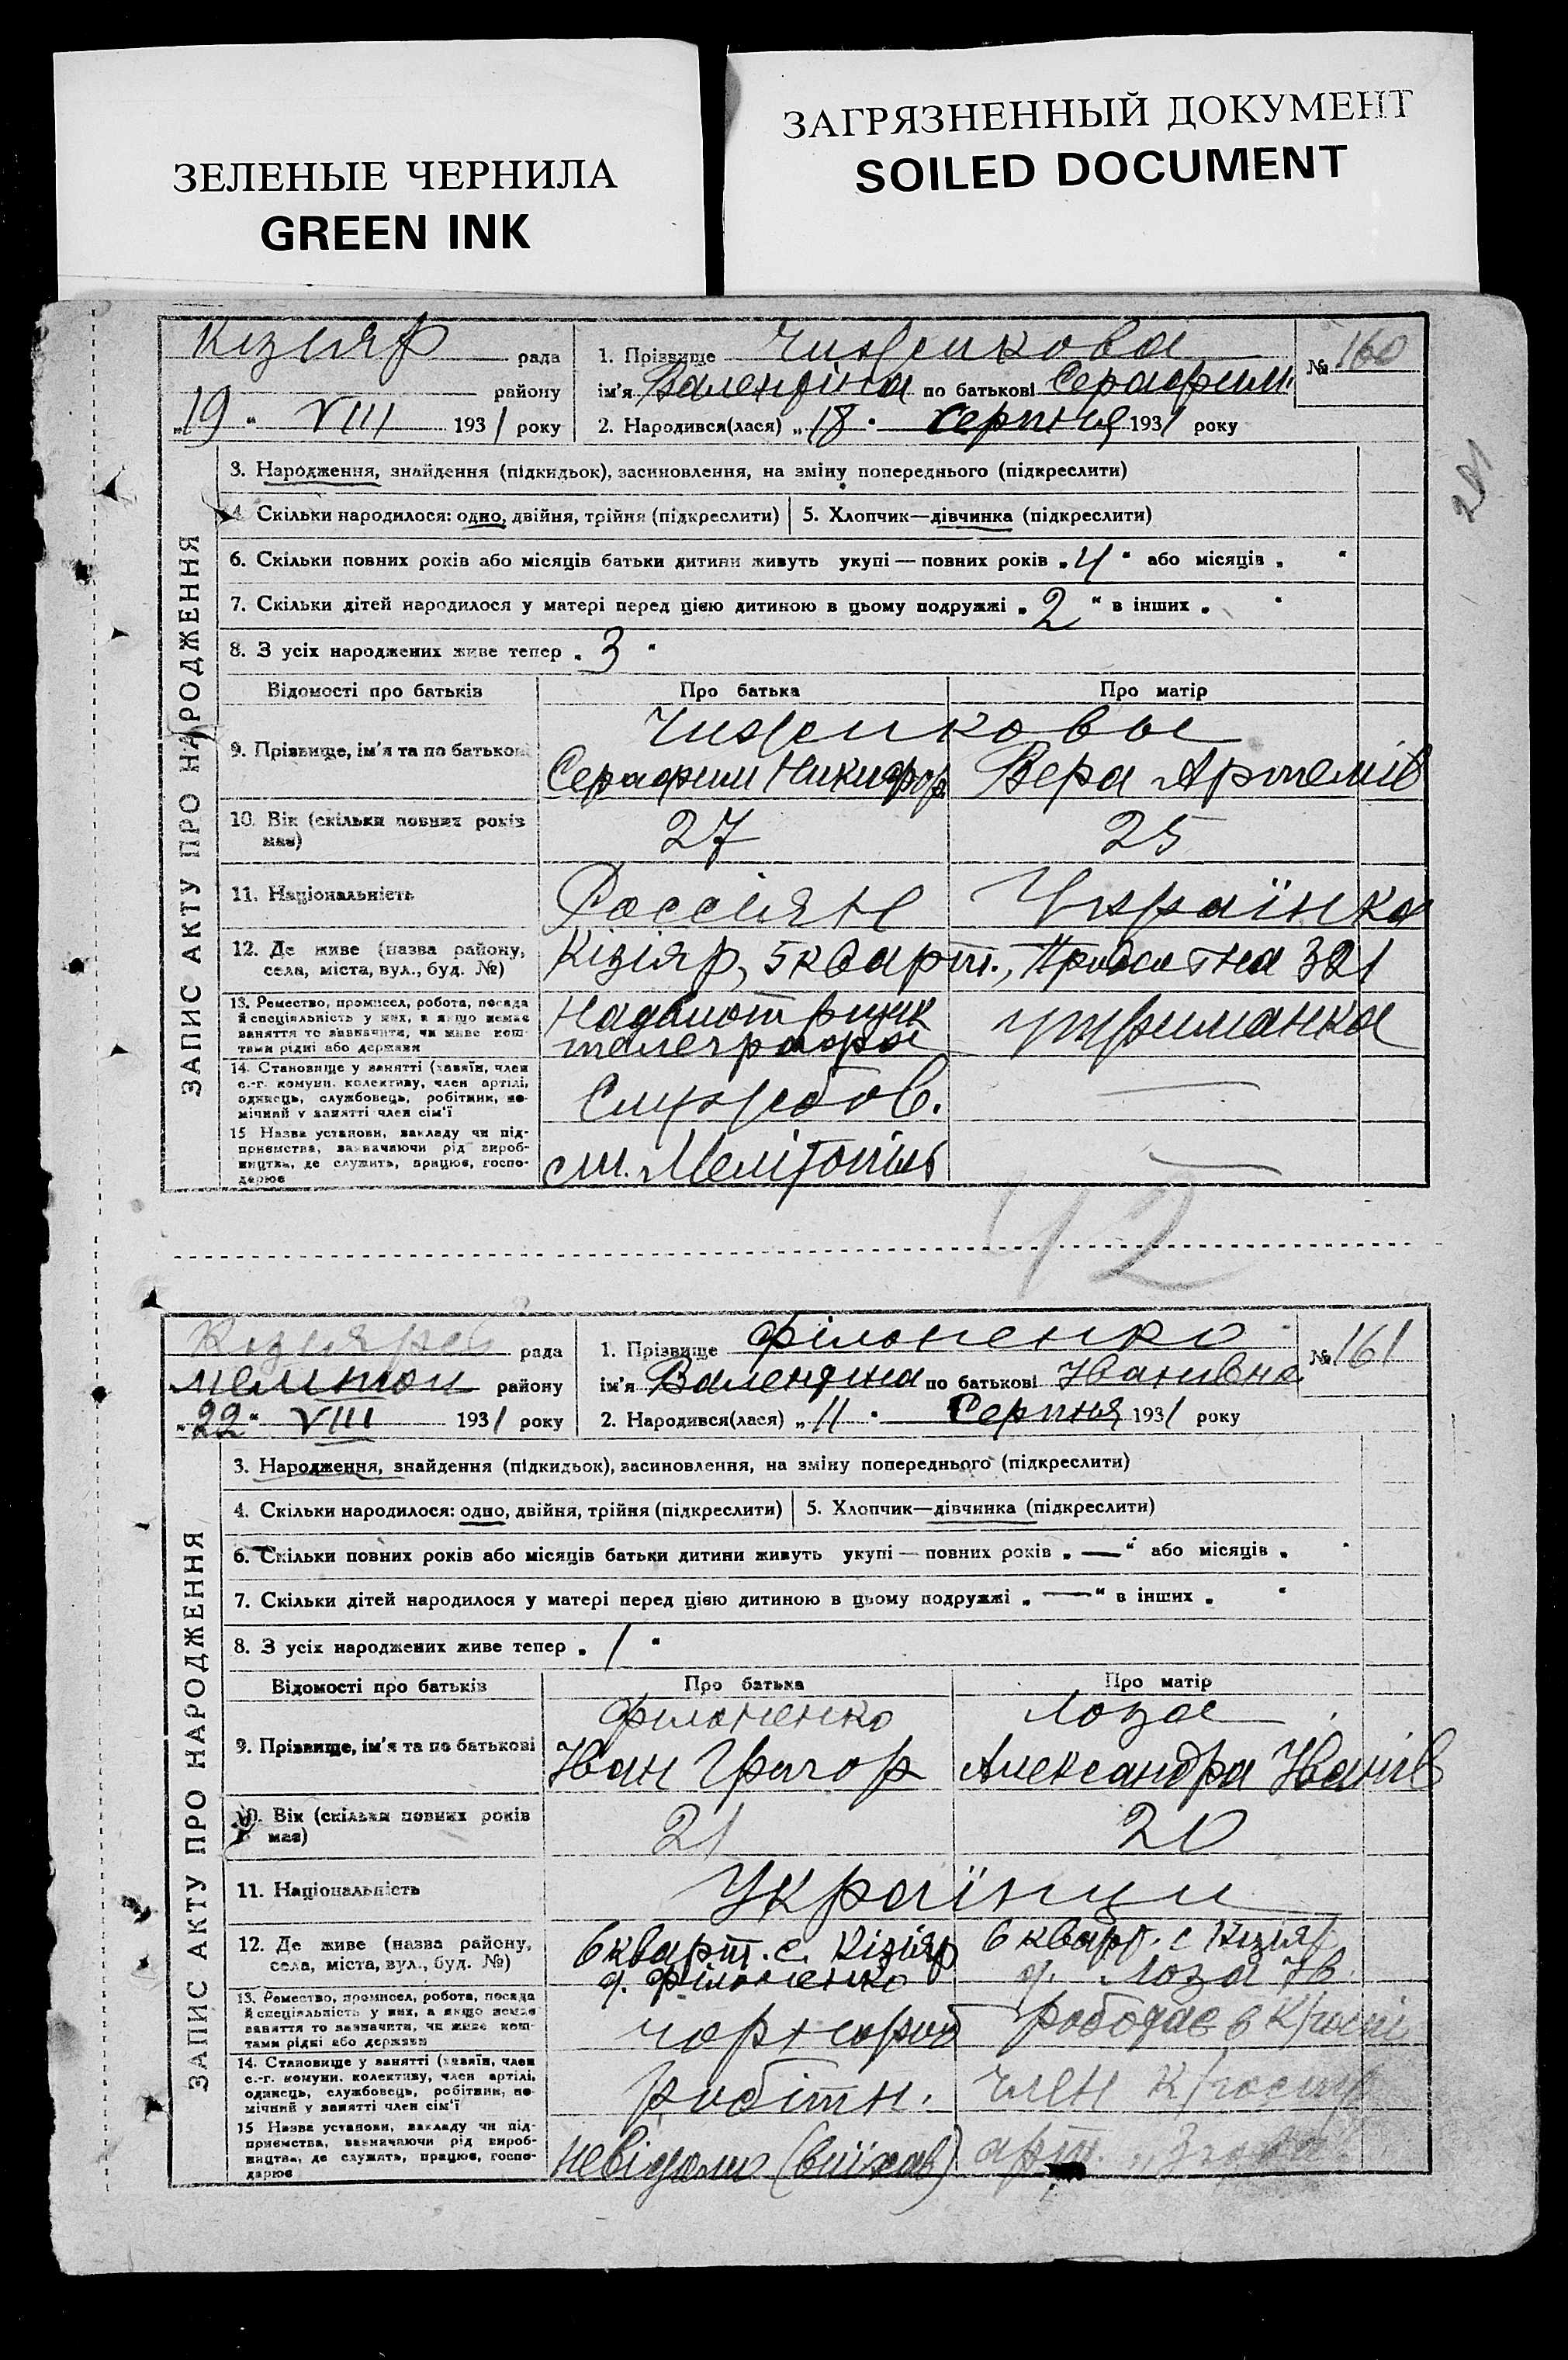 ЗЕЛЕНЫЕ ЧЕРНИЛА
GREEN INK
ЗАГРЯЗНЕННЫЙ ДОКУМЕНТ
SOILED DOCUMENT
ЗАПИС АКТУ ПРО НАРОДЖЕННЯ
Кізияр рада
району
„19“ VIII 1931 року
1. Прізвище Чиженкова
ім'я Валентіна по батькові Серафим.
№ 160
2. Народився(лася) „18“ серпня 1931 року
3. Народження, знайдення (підкидьок), засиновлення, на зміну попереднього (підкреслити)
4. Скільки народилося: одно, двійня, трійня (підкреслити) 5. Хлопчик—дівчинка (підкреслити)
6. Скільки повних років або місяців батьки дитини живуть укупі — повних років „4“ або місяців „ “
7. Скільки дітей народилося у матері перед цією дитиною в цьому подружжі „2“ в інших „ “
8. З усіх народжених живе тепер „3“
Відомості про батьків Про батька Про матір
9. Прізвище, ім'я та по батькові Чиженковы
Серафим Никифор Вера Артемів
10. Вік (скільки повних років
має) 27 25
11. Національність Россіян Українка
12. Де живе (назва району,
села, міста, вул., буд. №) Кізіяр, 5 кварт., 321
13. Ремество, промисел, робота, посада
й спеціяльність у них, а якщо немає
заняття то зазначити, чи живе кош-
тами рідні або держави
Надсмотрщик
телеграфа утриманка
14. Становище у занятті (хазяїн, член
с.-г. комуни, колективу, член артілі,
одинець, службовець, робітник, по-
мічний у занятті член сім'ї
Службов. —
15 Назва установи, закладу чи під-
приємства, зазначаючи рід вироб-
ництва, де служить, працює, госпо-
дарює
ст. Мелітопіль —
42
ЗАПИС АКТУ ПРО НАРОДЖЕННЯ
рада
району
„22“ VIII 1931 року
1. Прізвище Філоненко
ім'я Валентина по батькові Іванівна
№ 161
2. Народився(лася) „11“ Серпня 1931 року
3. Народження, знайдення (підкидьок), засиновлення, на зміну попереднього (підкреслити)
4. Скільки народилося: одно, двійня, трійня (підкреслити) 5. Хлопчик—дівчинка (підкреслити)
6. Скільки повних років або місяців батьки дитини живуть укупі — повних років „—“ або місяців „ “
7. Скільки дітей народилося у матері перед цією дитиною в цьому подружжі „—“ в інших „ “
8. З усіх народжених живе тепер „1“
Відомості про батьків Про батька Про матір
9. Прізвище, ім'я та по батькові Філоненко Лоза
Іван Григор Александра Іванів
10. Вік (скільки повних років
має) 21 20
11. Національність Українци
12. Де живе (назва району,
села, міста, вул., буд. №)
6 кварт. с. Кізіяр 6 кварт. с Кізіяр
д. Філоненко д. Лоза Ів.
13. Ремество, промисел, робота, посада
й спеціяльність у них, а якщо немає
заняття то зазначити, чи живе кош-
тами рідні або держави
чорнороб
14. Становище у занятті (хазяїн, член
с.-г. комуни, колективу, член артілі,
одинець, службовець, робітник, по-
мічний у занятті член сім'ї
робітн. член
15 Назва установи, закладу чи під-
приємства, зазначаючи рід вироб-
ництва, де служить, працює, госпо-
дарює
невідомо (виїхав) арт.